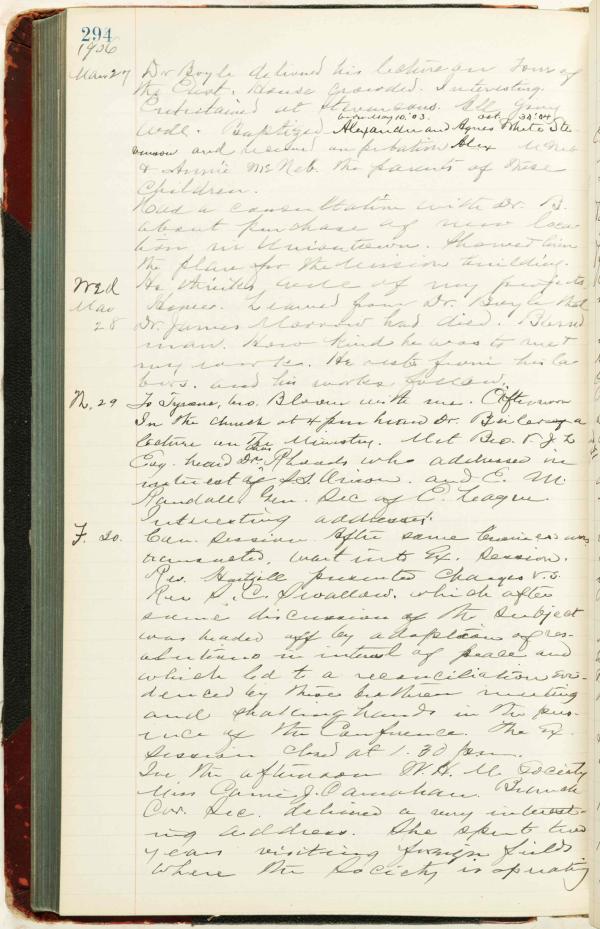 294
1906
Mar 27 Dr Boyle delivered his lecture on Tour of
the East. House crowded. Interesting.
Entertained at Stevensons. All going
born May 10, '03. Oct 30, '04
well. Baptized Alexander and Agnes White Ste-
venson and received on probation Alex
& Annie McNeb. the parents of these
Children.
Had a consultation with Dr. B.
about purchase of new loca
tion in Uniontown. Showed him
the plans for the Mission building.
Wed He thinks well of my projects
Mar Learned from Dr. Boyle that
28 Dr. James Morrow had died. Blessed
man. How kind he was to me &
my work. He rests from his la
bors. and his works follow.
Th. 29 To Tyrone, Geo. Bloom with me. Afternoon
In the church at 4 pm heard Dr. a
lecture on The Ministry. Met Geo. & J L
Esq. heard Dr. Rhoads who addressed in
interest of S.S. Union. and E. M.
Randall Gen. Sec of E. League.
Interesting addresses.
F. 30. Con. session. After some business was
transacted, went into Ex. Session.
Rev. Hartzell presented Charges v.s.
Rev S. C. Swallow. which after
some discussion of the subject
was headed off by adoption of res-
olutions in interest of peace and
which led to a reconciliation evi-
denced by these brethren meeting
and shaking hands in the pres-
ence of the Conference. The Ex.
Session closed at 1.30 pm.
In the afternoon W. H. M. Society
Miss Carrie J. Carnahan. Branch
Cor. Sec. delivered a very interest-
ing address. She spent two
years visiting foreign fields
where the Society is operating